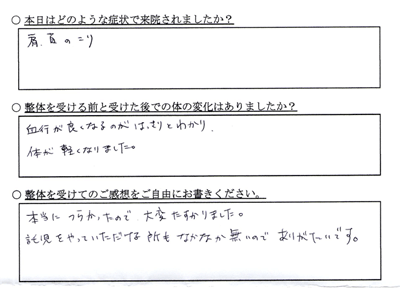 ○ 本日はどのような症状で来院されましたか？
肩、首のこり
○ 整体を受ける前と受けた後での体の変化はありましたか？
血行が良くなるのがはっきりとわかり、
体が軽くなりました。
○ 整体を受けてのご感想をご自由にお書きください。
本当につらかったので大変たすかりました。
託児をやっていただける所もなかなか無いのでありがたいです。